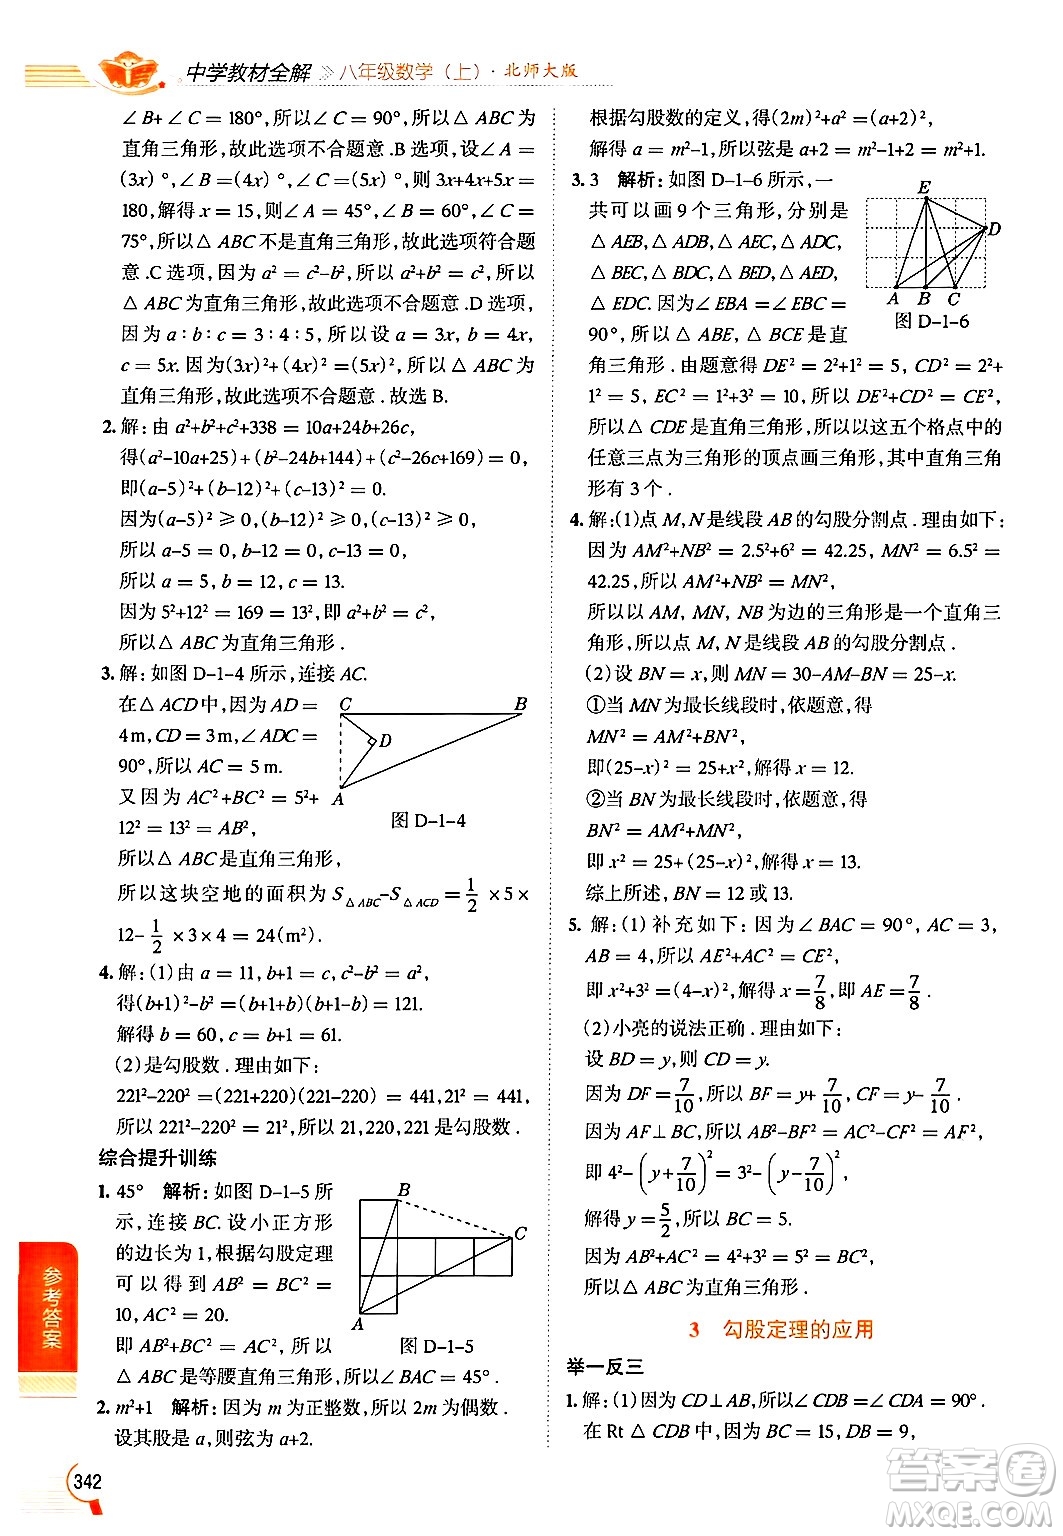 中学教材全解 » 八年级数学（上）· 北师大版
∠B+∠C=180°,所以∠C=90°,所以△ABC为
直角三角形,故此选项不合题意.B选项,设∠A=
(3x)°,∠B=(4x)°,∠C=(5x)°,则3x+4x+5x=
180,解得x=15,则∠A=45°,∠B=60°,∠C=
75°,所以△ABC不是直角三角形,故此选项符合题
意.C选项,因为a²=c²–b²,所以a²+b²=c²,所以
△ABC为直角三角形,故此选项不合题意.D选项,
因为a:b:c=3:4:5,所以设a=3x,b=4x,
c=5x.因为(3x)²+(4x)²=(5x)²,所以△ABC为
直角三角形,故此选项不合题意.故选B.
2.解:由a²+b²+c²+338=10a+24b+26c,
得(a²–10a+25)+(b²–24b+144)+(c²–26c+169)=0,
即(a–5)²+(b–12)²+(c–13)²=0.
因为(a–5)²≥0,(b–12)²≥0,(c–13)²≥0,
所以a–5=0,b–12=0,c–13=0.
所以a=5,b=12,c=13.
因为5²+12²=169=13²,即a²+b²=c²,
所以△ABC为直角三角形.
3.解:如图D–1–4所示,连接AC.
在△ACD中,因为AD=
4m,CD=3m,∠ADC=
90°,所以AC=5m.
又因为AC²+BC²=5²+
12²=13²=AB²,
C
B
D
A
图D–1–4
所以△ABC是直角三角形,
所以这块空地的面积为S△ABC–S△ACD=1/2×5×
12–1/2×3×4=24(m²).
4.解:(1)由a=11,b+1=c,c²–b²=a²,
得(b+1)²–b²=(b+1+b)(b+1–b)=121.
解得b=60,c=b+1=61.
(2)是勾股数.理由如下:
221²–220²=(221+220)(221–220)=441,21²=441,
所以221²–220²=21²,所以21,220,221是勾股数.
综合提升训练
1.45° 解析:如图D–1–5所
示,连接BC.设小正方形
的边长为1,根据勾股定理
可以得到AB²=BC²=
10,AC²=20.
即AB²+BC²=AC²,所以
B
C
A
图D–1–5
△ABC是等腰直角三角形,所以∠BAC=45°.
2.m²+1 解析:因为m为正整数,所以2m为偶数.
设其股是a,则弦为a+2.
根据勾股数的定义,得(2m)²+a²=(a+2)²,
解得a=m²–1,所以弦是a+2=m²–1+2=m²+1.
3.3 解析:如图D–1–6所示,一
共可以画9个三角形,分别是
△AEB,△ADB,△AEC,△ADC,
△BEC,△BDC,△BED,△AED,
△EDC.因为∠EBA=∠EBC=
90°,所以△ABE,△BCE是直
E
D
A B C
图D–1–6
角三角形.由题意得DE²=2²+1²=5,CD²=2²+
1²=5,EC²=1²+3²=10,所以DE²+CD²=CE²,
所以△CDE是直角三角形,所以以这五个格点中的
任意三点为三角形的顶点画三角形,其中直角三角
形有3个.
4.解:(1)点M,N是线段AB的勾股分割点.理由如下:
因为AM²+NB²=2.5²+6²=42.25,MN²=6.5²=
42.25,所以AM²+NB²=MN²,
所以以AM,MN,NB为边的三角形是一个直角三
角形,所以点M,N是线段AB的勾股分割点.
(2)设BN=x,则MN=30–AM–BN=25–x.
①当MN为最长线段时,依题意,得
MN²=AM²+BN²,
即(25–x)²=25+x²,解得x=12.
②当BN为最长线段时,依题意,得
BN²=AM²+MN²,
即x²=25+(25–x)²,解得x=13.
综上所述,BN=12或13.
5.解:(1)补充如下:因为∠BAC=90°,AC=3,
AB=4,所以AE²+AC²=CE²,
即x²+3²=(4–x)²,解得x=7/8,即AE=7/8.
(2)小亮的说法正确.理由如下:
设BD=y,则CD=y.
因为DF=7/10,所以BF=y+7/10,CF=y–7/10.
因为AF⊥BC,所以AB²–BF²=AC²–CF²=AF²,
即4²–(y+7/10)²=3²–(y–7/10)²,
解得y=5/2,所以BC=5.
因为AB²+AC²=4²+3²=5²=BC²,
所以△ABC为直角三角形.
3 勾股定理的应用
举一反三
1.解:(1)因为CD⊥AB,所以∠CDB=∠CDA=90°.
在Rt△CDB中,因为BC=15,DB=9,
参考答案
342
答案圈
MXQE.COM